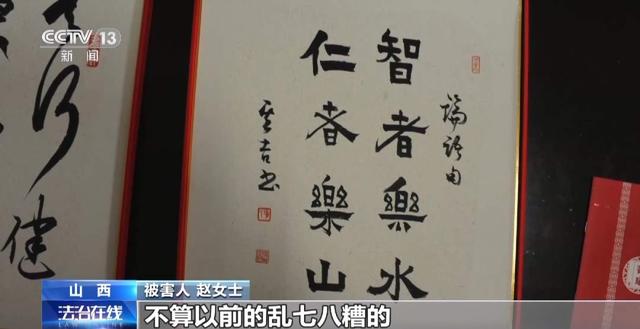 CCTV 13
新闻
智者樂水
仁者樂山
論語句
吉书
健
山西
被害人 赵女士
法治在线
不算以前的乱七八糟的